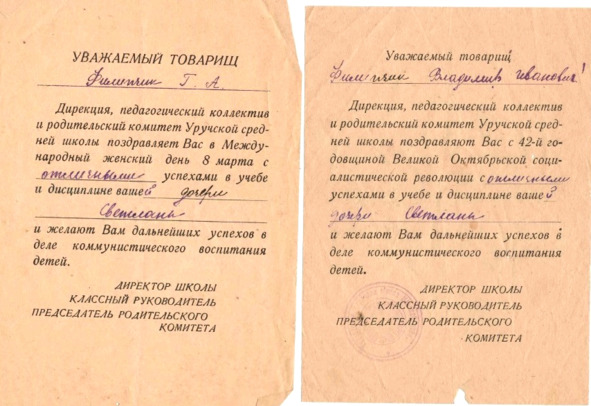 УВАЖАЕМЫЙ ТОВАРИЩ
Филипчик Г. А
Дирекция, педагогический коллектив
и родительский комитет Уручской сред-
ней школы поздравляет Вас в Между-
народный женский день 8 марта с
отличными успехами в учебе
и дисциплине вашей дочери
Светланы
и желают Вам дальнейших успехов в
деле коммунистического воспитания
детей.
ДИРЕКТОР ШКОЛЫ
КЛАССНЫЙ РУКОВОДИТЕЛЬ
ПРЕДСЕДАТЕЛЬ РОДИТЕЛЬСКОГО
КОМИТЕТА
Уважаемый товарищ
Филипчик Владимир Иванович!
Дирекция, педагогический коллектив
и родительский комитет Уручской сред-
ней школы поздравляют Вас с 42-й го-
довщиной Великой Октябрьской соци-
алистической революции с отличными
успехами в учебе и дисциплине вашей
дочери Светланы
и желают Вам дальнейших успехов в
деле коммунистического воспитания
детей.
ДИРЕКТОР ШКОЛЫ
КЛАССНЫЙ РУКОВОДИТЕЛЬ
ПРЕДСЕДАТЕЛЬ РОДИТЕЛЬСКОГО
КОМИТЕТА